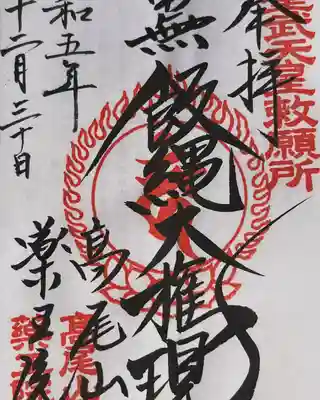 聖武天皇敕願所
奉拝
飯縄大権現
高尾山
薬王院
令和五年
十二月三十日
高尾山
薬王院